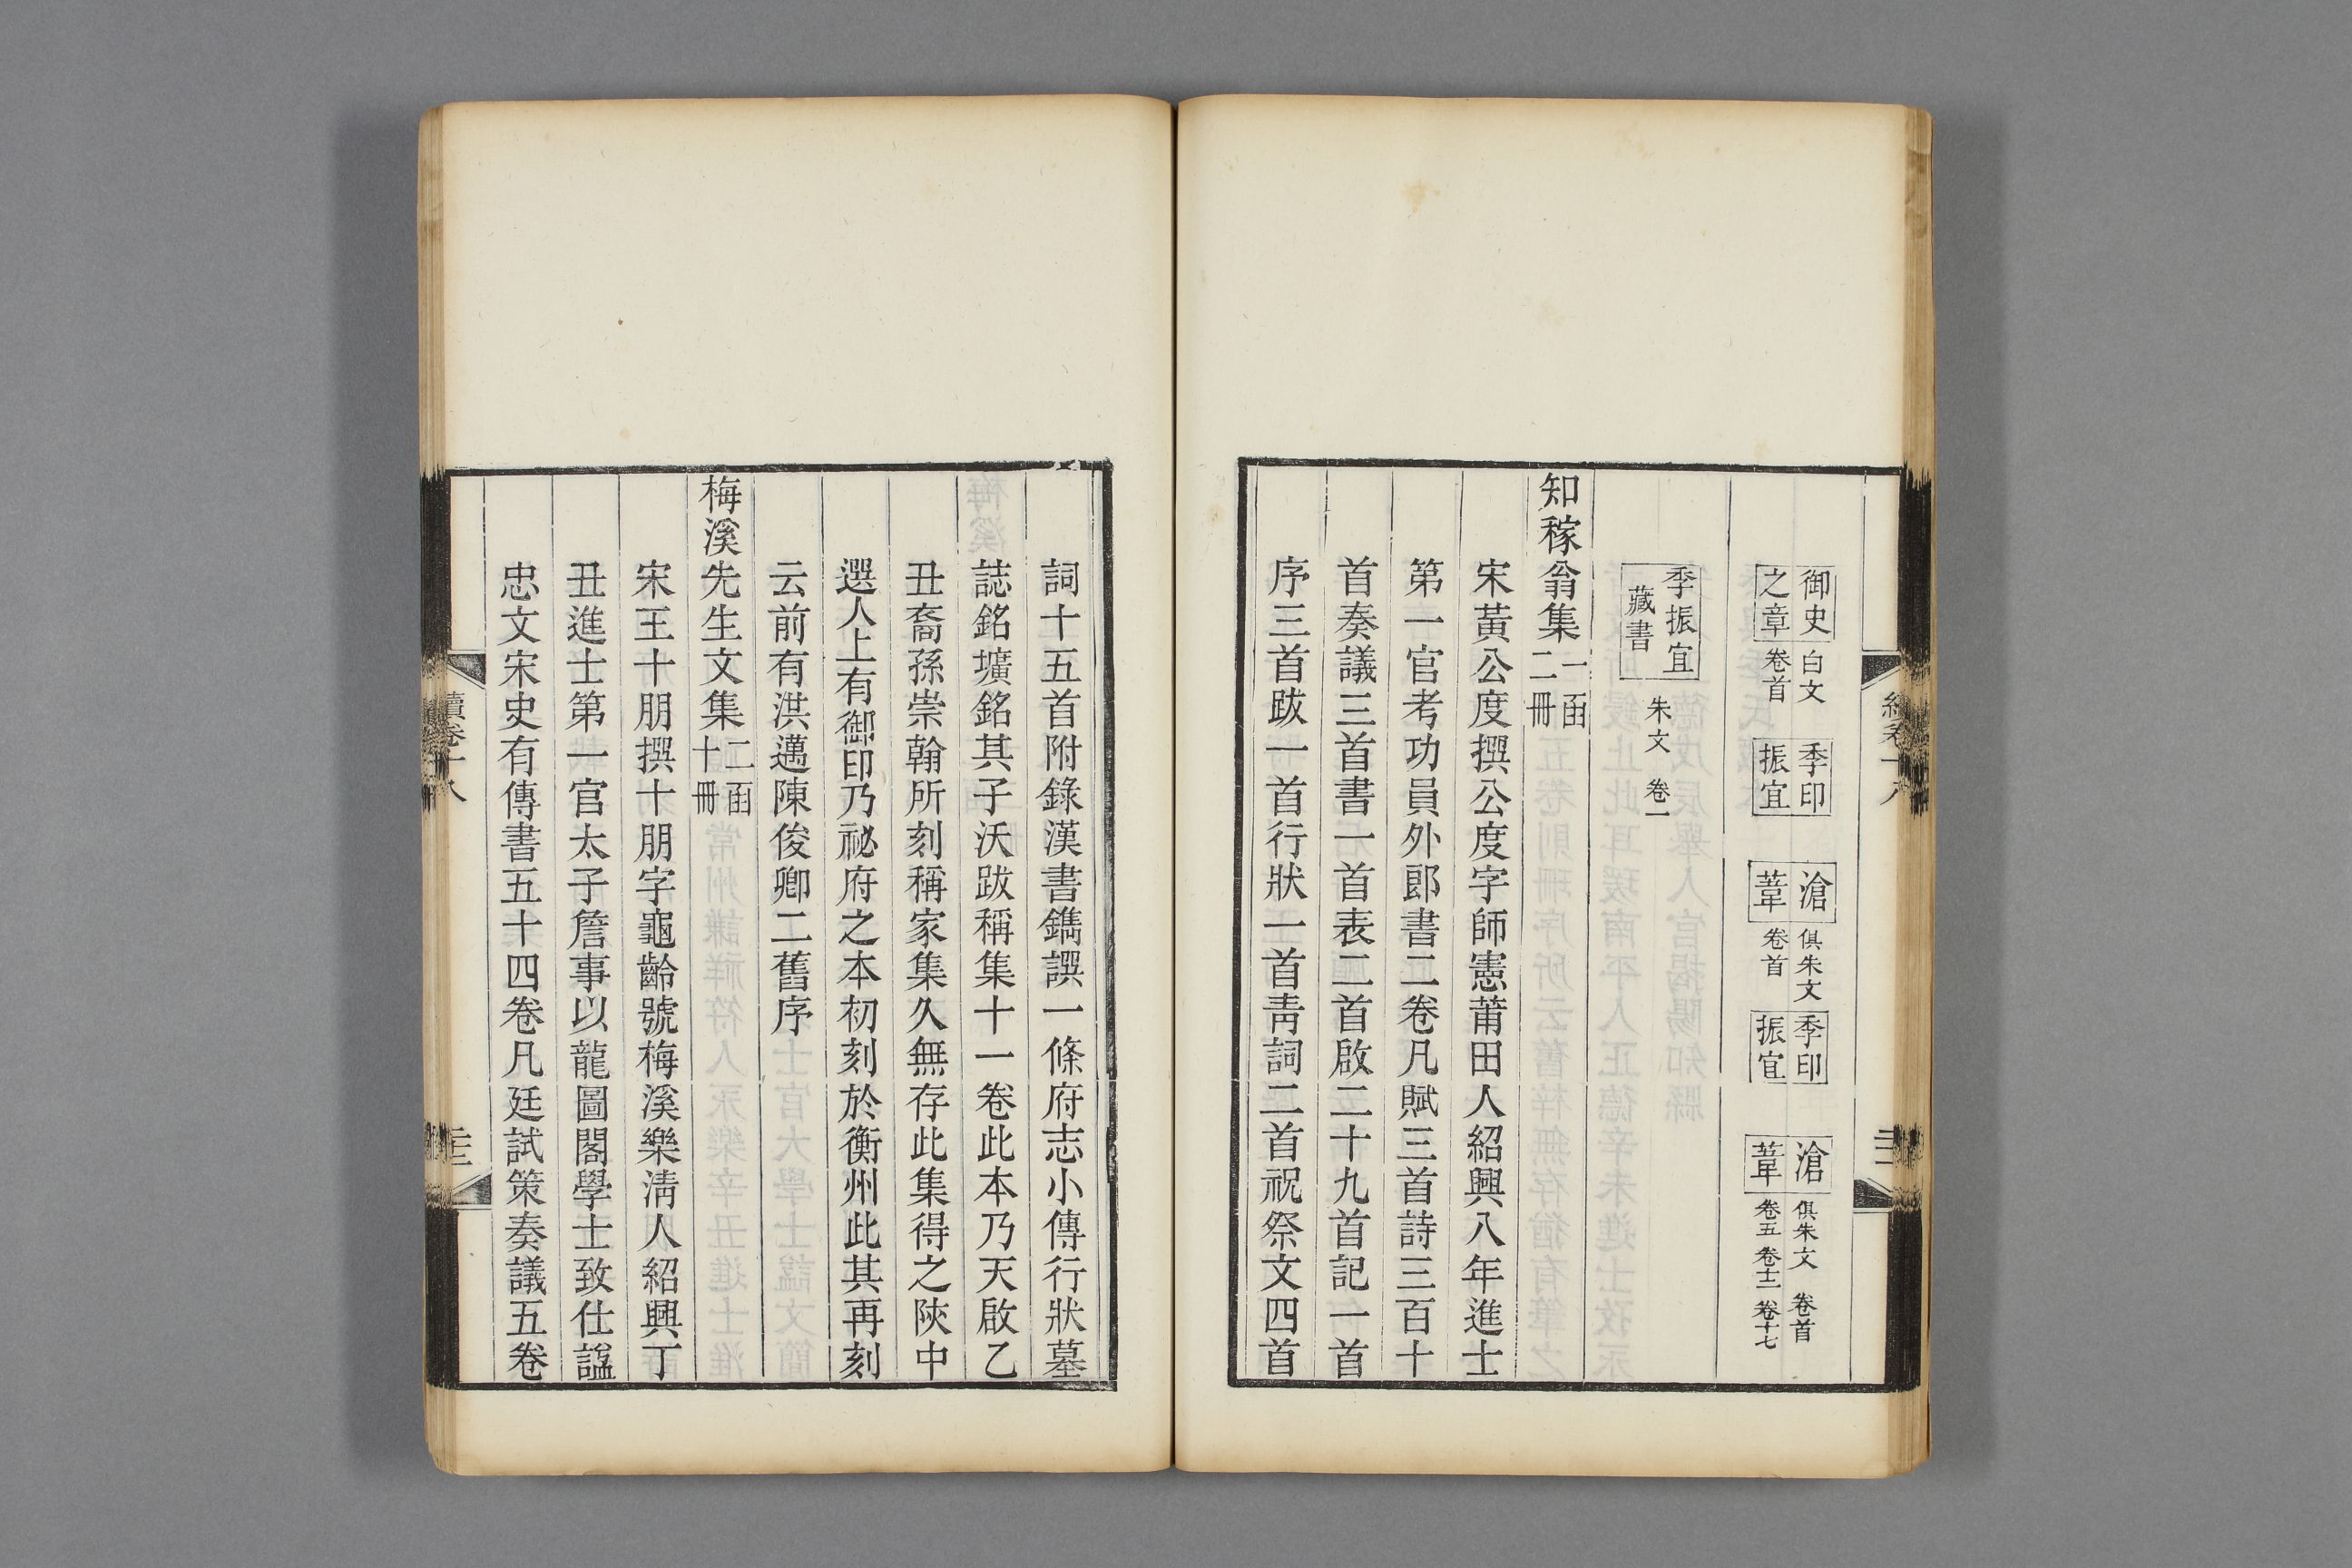 御史之章 白文 卷首 季印振宜 滄葦 俱朱文 卷首 季印振宜 滄葦 俱朱文 卷首 卷五 卷十二 卷十七
季振宜藏書 朱文 卷一
知稼翁集 一函二冊
宋黃公度撰公度字師憲莆田人紹興八年進士
第一官考功員外郎書二卷凡賦三首詩三百十
首奏議三首書一首表二首啟二十九首記一首
序三首跋一首行狀一首靑詞二首祝祭文四首
詞十五首附錄漢書鐫誤一條府志小傳行狀墓
誌銘壙銘其子沃跋稱集十一卷此本乃天啟乙
丑裔孫崇翰所刻稱家集久無存此集得之陝中
選人上有御印乃祕府之本初刻於衡州此其再刻
云前有洪邁陳俊卿二舊序
梅溪先生文集 二函十冊
宋王十朋撰十朋字龜齡號梅溪樂淸人紹興丁
丑進士第一官太子詹事以龍圖閣學士致仕諡
忠文宋史有傳書五十四卷凡廷試策奏議五卷
續卷十八